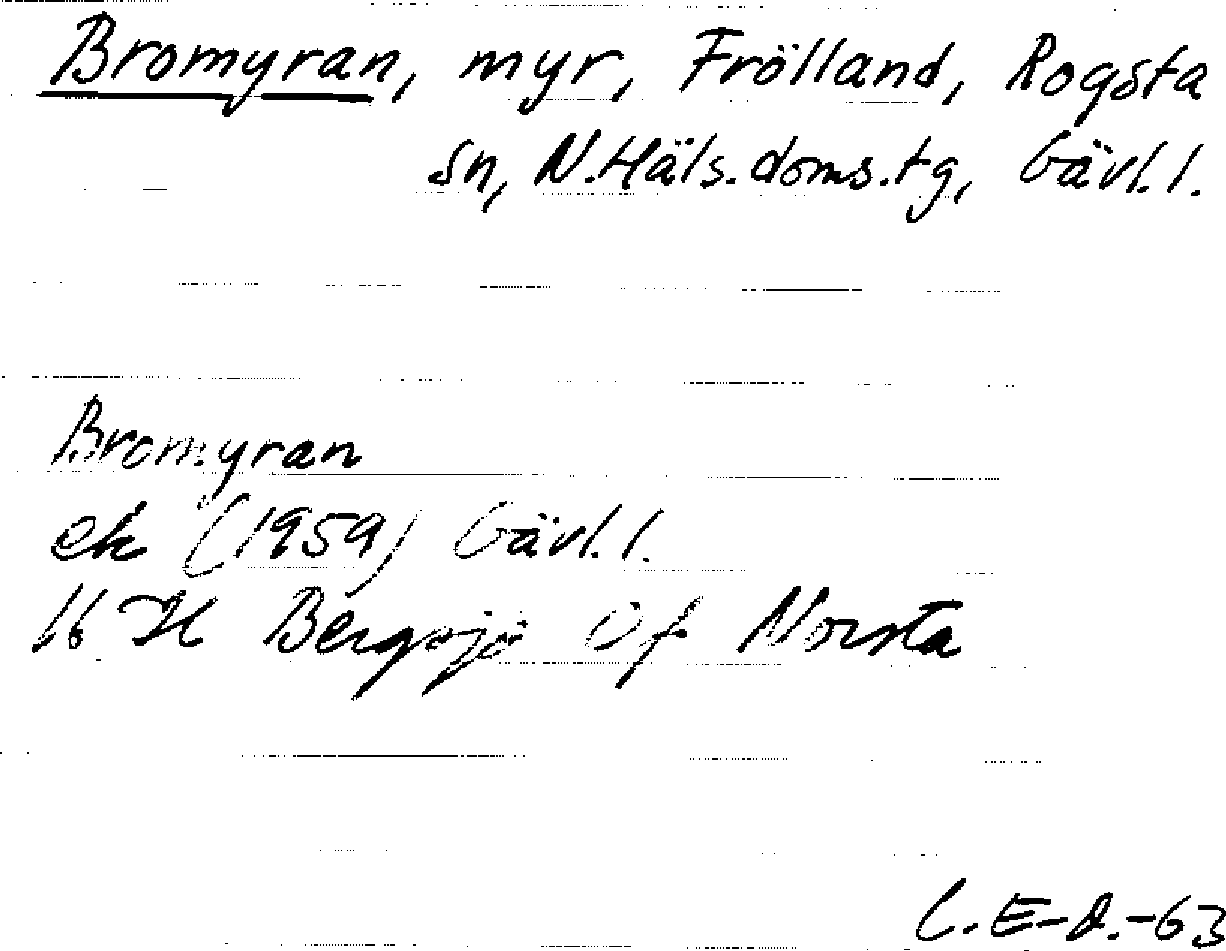 Bromyran, myr, Frölland, Rogsta
sn, N.Häls.doms.tg, Gävl.l.
Bromyran
ek (1959) Gävl.l.
16 H Bergsjö öf Norsta
C.E-d.-63